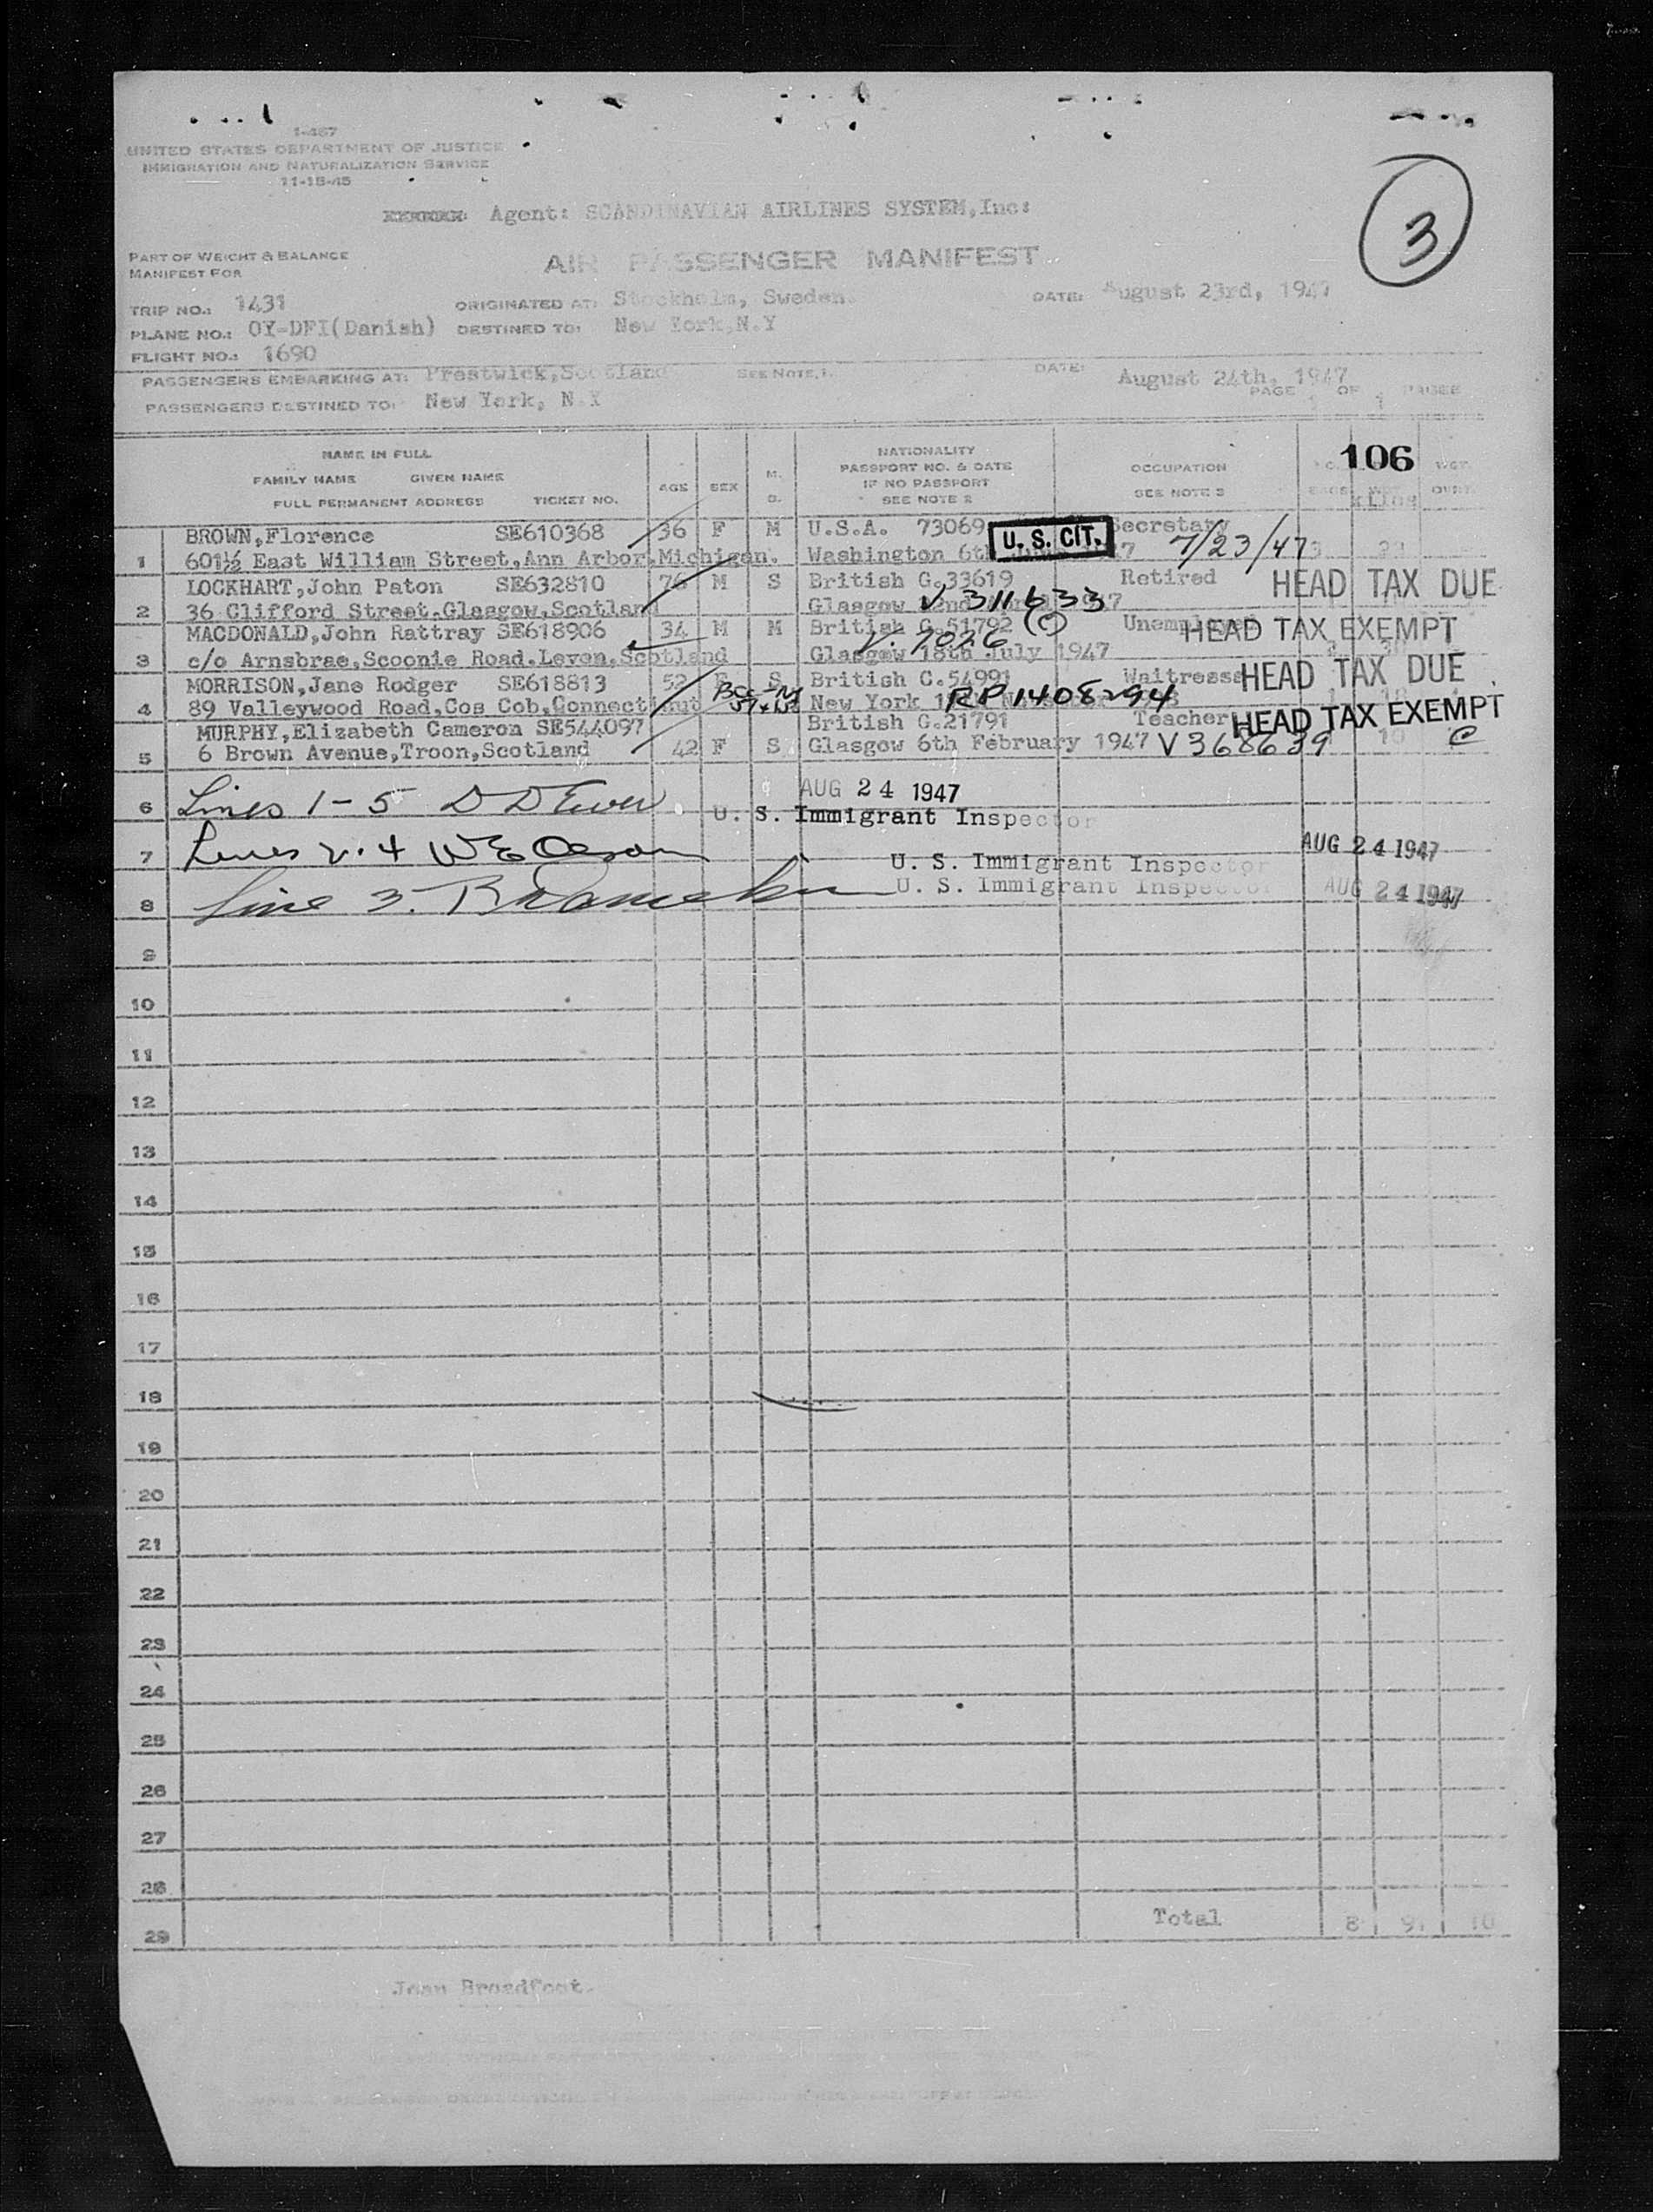 1-467
UNITED STATES DEPARTMENT OF JUSTICE
IMMIGRATION AND NATURALIZATION SERVICE
11-15-45
3
Agent: SCANDINAVIAN AIRLINES SYSTEM,Inc:
PART OF WEIGHT & BALANCE
MANIFEST FOR
AIR PASSENGER MANIFEST
TRIP NO.: 1431 ORIGINATED AT: Stockholm, Sweden. DATE: August 23rd, 1947
PLANE NO.: OY-DFI(Danish) DESTINED TO: New York,N.Y
FLIGHT NO.: 1690
PASSENGERS EMBARKING AT: Prestwick,Scotland SEE NOTE,1. DATE: August 24th, 1947
PASSENGERS DESTINED TO: New York, N.Y PAGE 1 OF 1 PAGES
106
NAME IN FULL
FAMILY NAME GIVEN NAME
FULL PERMANENT ADDRESS TICKET NO.
AGE
SEX
M.
S.
NATIONALITY
PASSPORT NO. & DATE
IF NO PASSPORT
SEE NOTE 2
OCCUPATION
SEE NOTE 3
BAGS WGT. WGT.
kilos
BROWN,Florence SE610368 36 F M U.S.A. 73069 U. S. CIT. Secretary
1 601½ East William Street,Ann Arbor,Michigan. Washington 6th 7/23/47
LOCKHART,John Paton SE632810 76 M S British C.33619 Retired HEAD TAX DUE
2 36 Clifford Street.Glasgow,Scotland Glasgow V 311633
MACDONALD,John Rattray SE618906 34 M M British C.51792 (C) Unemployed HEAD TAX EXEMPT
3 c/o Arnsbrae,Scoonie Road.Leven,Scotland V. 7026 Glasgow 18th July 1947
MORRISON,Jane Rodger SE618813 52 F S British C.54991 Waitress HEAD TAX DUE
4 89 Valleywood Road,Cos Cob,Connecticut New York RP 1408294
MURPHY,Elizabeth Cameron SE544097 British C.21791 Teacher HEAD TAX EXEMPT
5 6 Brown Avenue,Troon,Scotland 42 F S Glasgow 6th February 1947 V 368639 C
AUG 24 1947
6 Lines 1-5
U. S. Immigrant Inspector
7 Lines 2.4
U. S. Immigrant Inspector AUG 24 1947
8 Line 3.
U. S. Immigrant Inspector AUG 24 1947
9
10
11
12
13
14
15
16
17
18
19
20
21
22
23
24
25
26
27
28
29 Total 8 9 10
Jean Broadfoot.